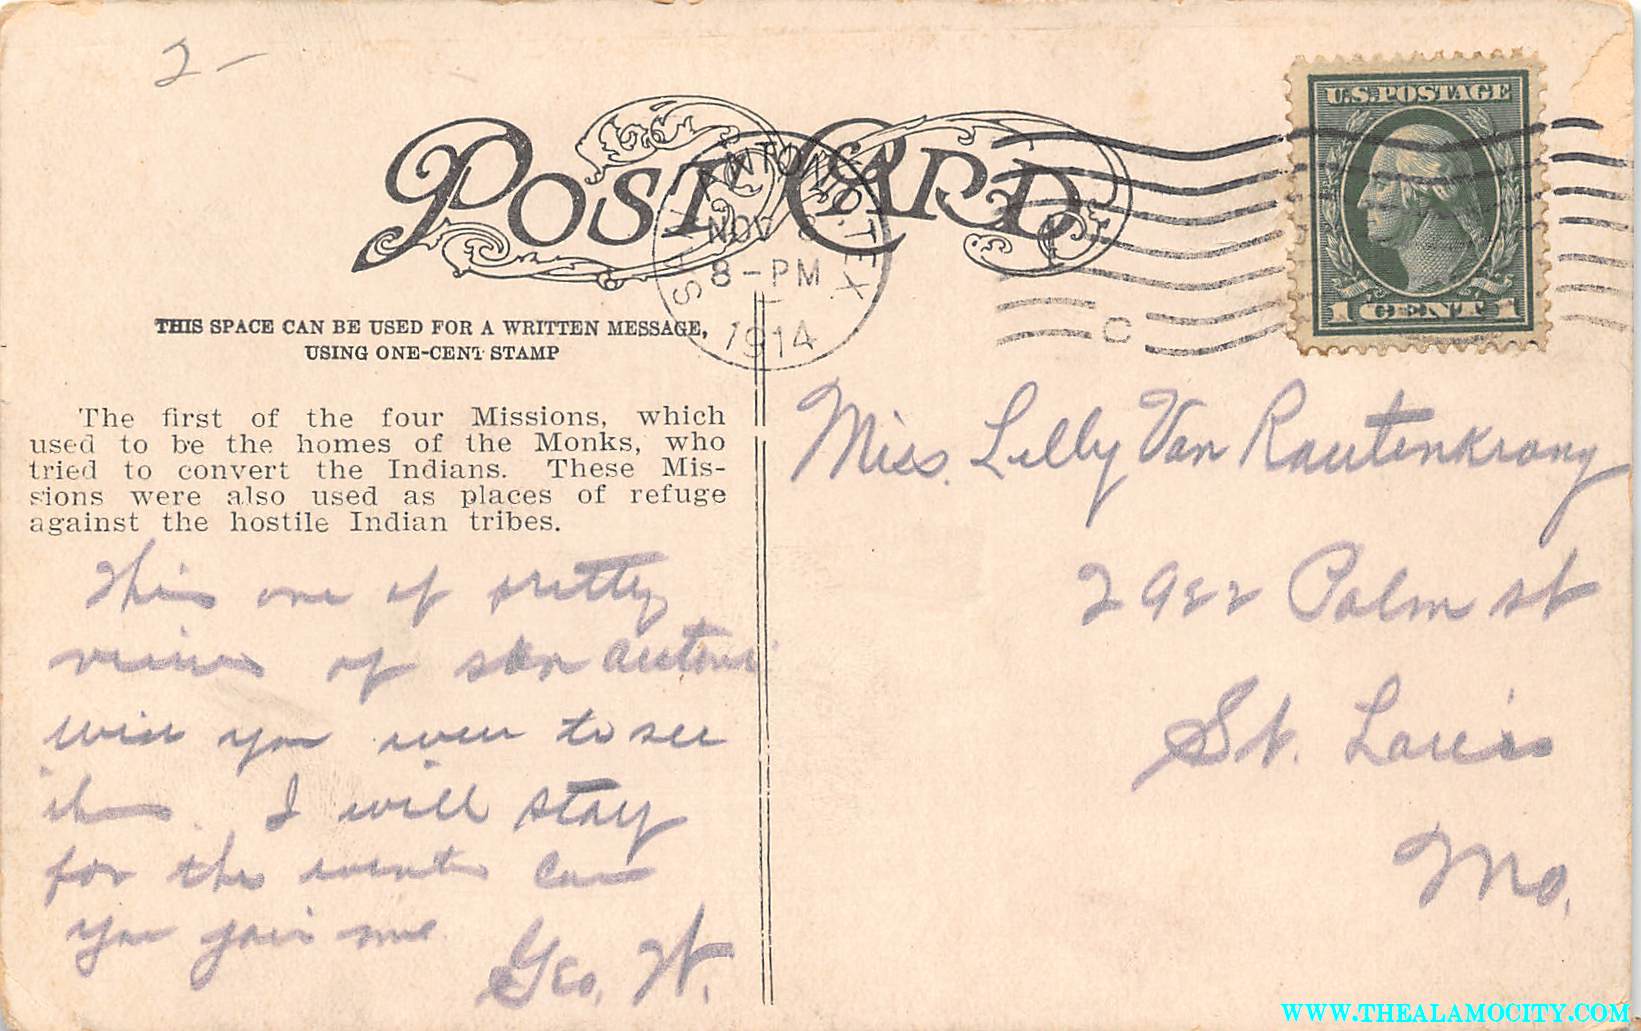 2-
POST CARD
SAN ANTONIO, TEX
NOV
8-PM
1914
C
U.S. POSTAGE
1 CENT 1
THIS SPACE CAN BE USED FOR A WRITTEN MESSAGE,
USING ONE-CENT STAMP
The first of the four Missions, which
used to be the homes of the Monks, who
tried to convert the Indians. These Mis-
sions were also used as places of refuge
against the hostile Indian tribes.
This one of pretty
views of san Antonio
wish you were to see
I will stay
for the Can
you join me
Geo. W.
Miss. Lilly Van Rautenkranz
2922 Palm st
St. Louis
Mo.
WWW.THEALAMOCITY.COM